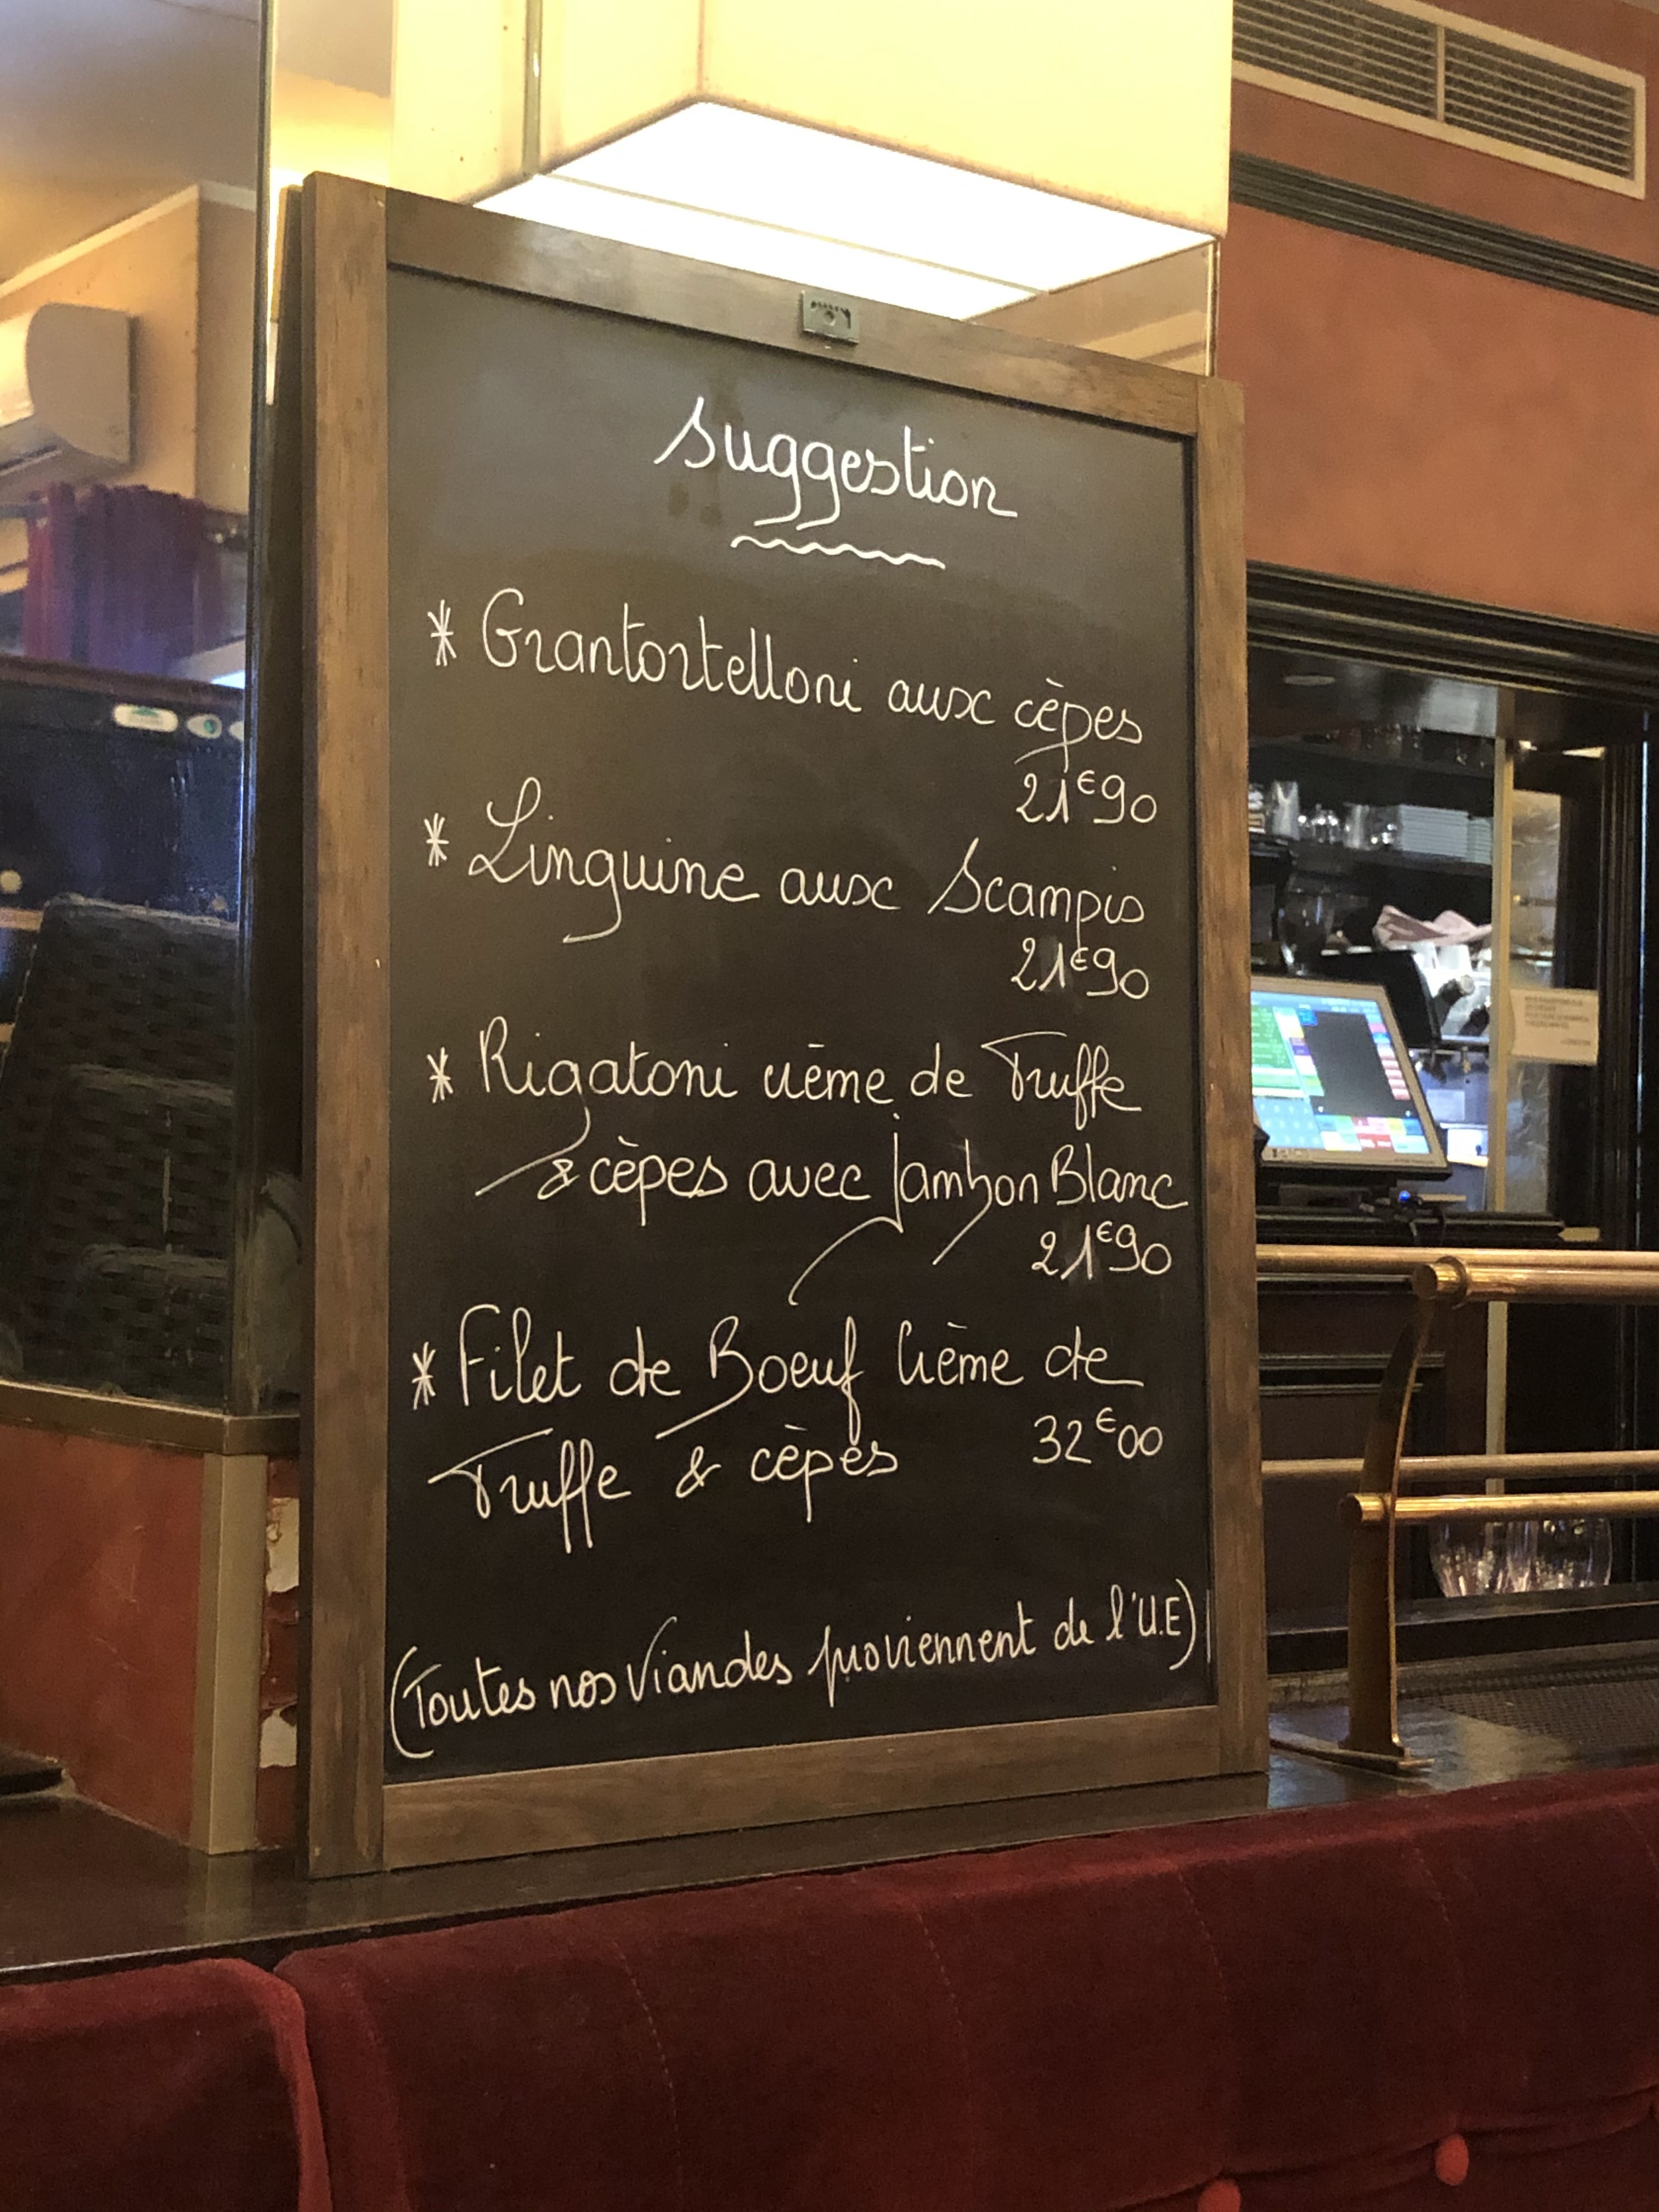 Suggestion
* Grantortelloni aux cèpes
21€90
* Linguine aux Scampis
21€90
* Rigatoni crème de Truffe
& cèpes avec Jambon Blanc
21€90
* Filet de Boeuf Crème de
Truffe & cèpes 32€00
(Toutes nos Viandes proviennent de l'U.E)